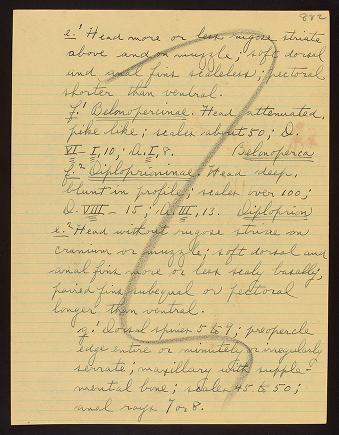 882
e.¹ Head more or less rugose striate
above and on muzzle; soft dorsal
and anal fins scaleless; pectoral
shorter than ventral.
f.¹ Belonopercinae. Head attenuated,
pike like; scales about 50; D.
VI – I, 10; A. I, 8. Belonoperca
f.² Diploprioninae. Head deep,
blunt in profile; scales over 100;
D. VIII – 15; A. III, 13. Diploprion
e.² Head without rugose striae on
cranium or muzzle; soft dorsal and
anal fins more or less scaly basally;
paired fins subequal or pectoral
longer than ventral.
g.¹ Dorsal spines 5 to 9; preopercle
edge entire or minutely or irregularly
serrate; maxillary with supple-
mental bone; scales 45 to 50;
anal rays 7 or 8.